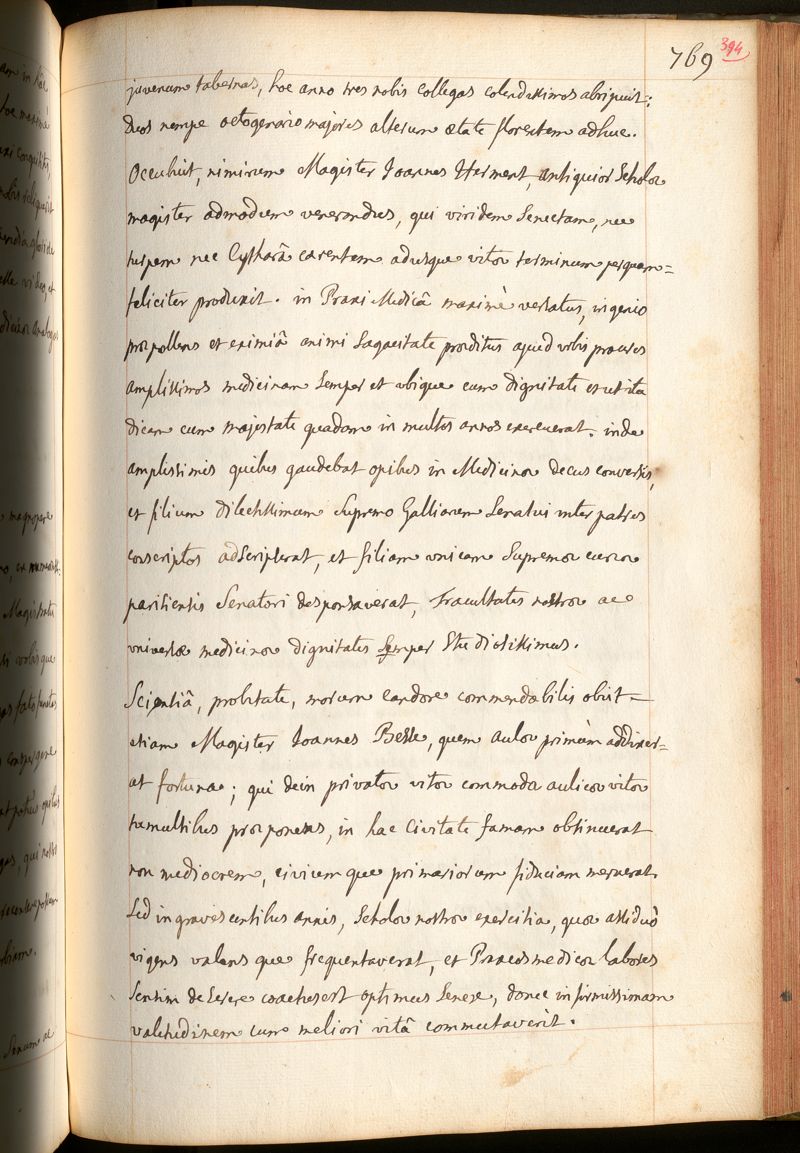 769
394
juvenum tabernas, hoc anno tres nobis collegas colendissimos abripuit:
duos nempe octogenario majores alterum ætate florentem adhuc.
Occubuit, nimirum Magister Joannes Herment, antiquior scholæ
magister admodum venerandus, qui viridem senectam, nec
turpem nec Cytharâ carentem adusque vitæ terminum perquam=
feliciter produxit. in Praxi Medicâ maximè versatus, ingenio
præpollens et eximiâ animi sagacitate præditus apud urbis proceres
amplissimos medicinam semper et ubique cum dignitate et ut ita
dicam cum majestate quadam in multos annos exercuerat. inde
amplissimis quibus gaudebat opibus in Medicinæ decus conversis,
et filium dilectissimum supremo Galliarum Senatui inter patres
conscriptos adscripserat, et filiam unicam supremæ curiæ
parisiensis Senatori desponsaverat, facultatis nostræ ac
universæ medicinæ dignitatis semper studiosissimus.
Scientiâ, probitate, morum candore commendabilis obiit
etiam Magister Joannes Besse, quem aulæ primùm addixer=
at fortuna; qui dein privatæ vitæ commoda aulicæ vitæ
tumultibus præponens, in hac Civitate famam obtinuerat
non mediocrem, civiumque primariorum fiduciam meruerat.
Sed ingravescentibus annis, Scholæ nostræ exercitia, quæ assiduò
vigens valensque frequentaverat, et Praxeos medicæ labores
sensim deserere coactus est optimus senex, donec infirmissimam
valetudinem cum meliori vitâ commutaverit.